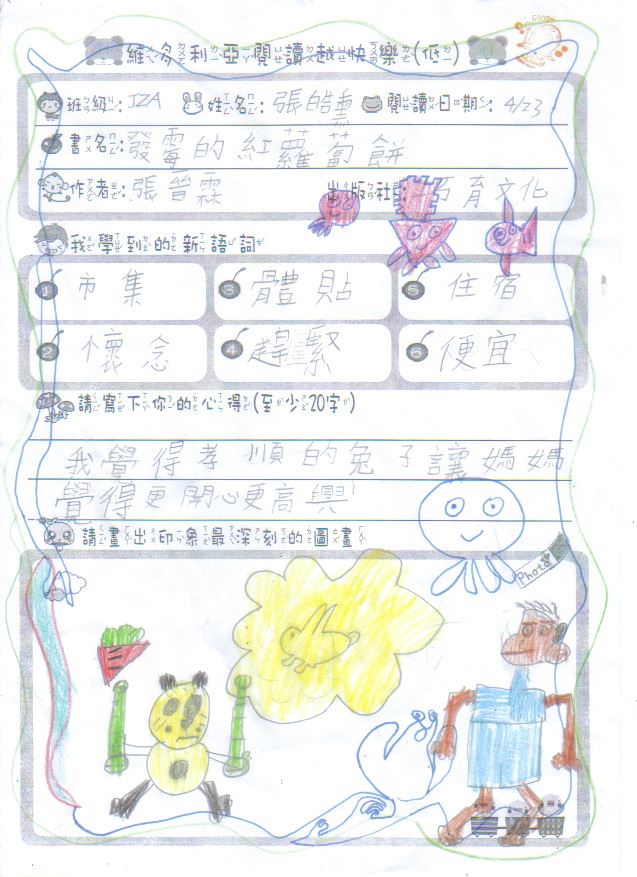 GOOD
維多利亞閱讀越快樂(低)
班級: JZA 姓名: 張皓嘉 閱讀日期: 4/23
書名: 發霉的紅蘿蔔餅
作者: 張晉霖 出版社: 巧育文化
我學到的新語詞
1 市集 3 體貼 5 住宿
2 懷念 4 趕緊 6 便宜
請寫下你的心得(至少20字)
我覺得孝順的兔子讓媽媽
覺得更開心更高興!
請畫出印象最深刻的圖畫
Photo